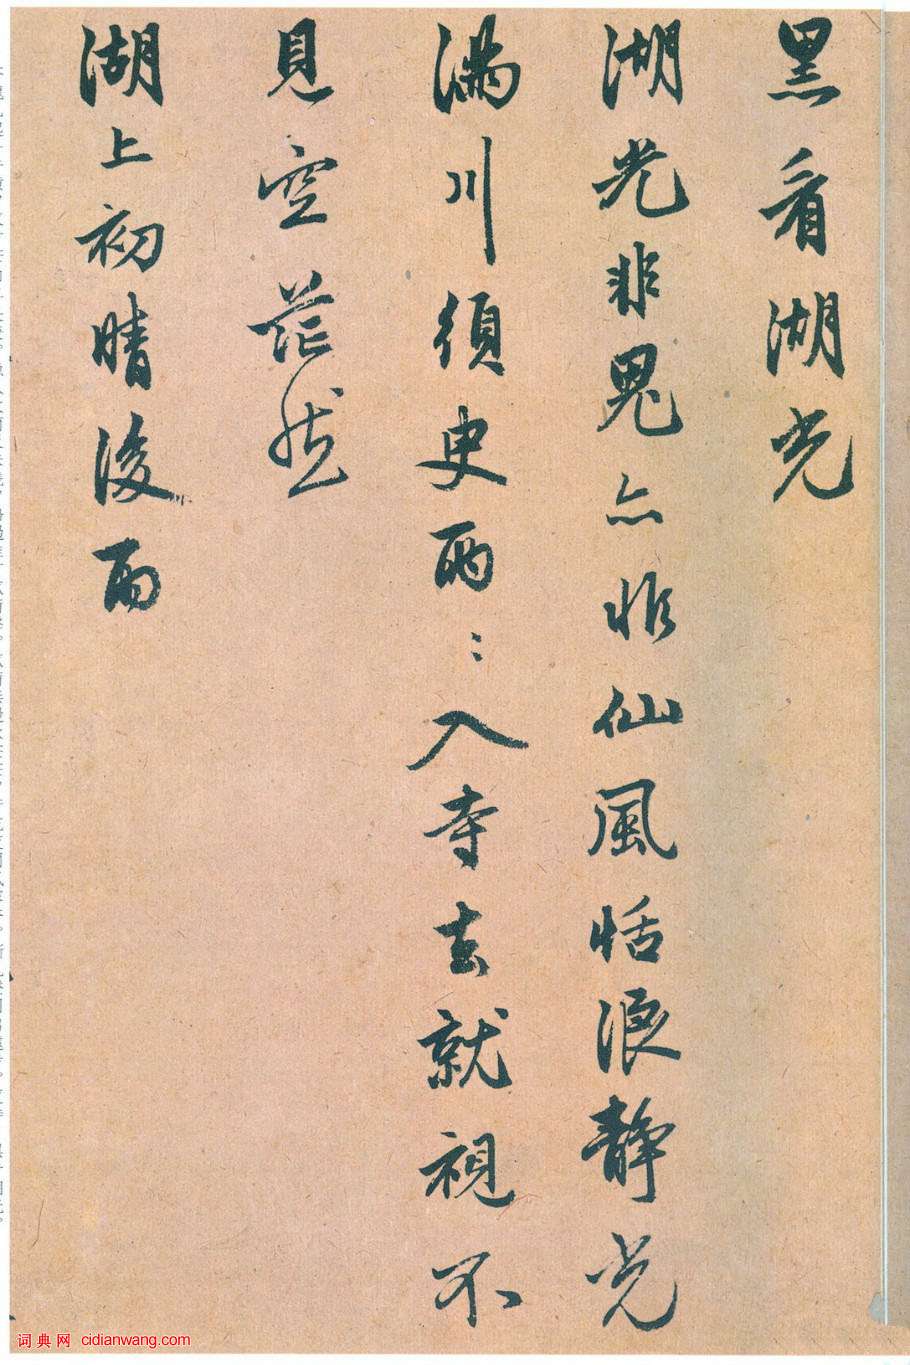 黑看湖光
湖光非鬼亦非仙風恬浪靜光
滿川須臾兩〻入寺去就視不
見空茫然
湖上初晴後雨
词典网 cidianwang.com